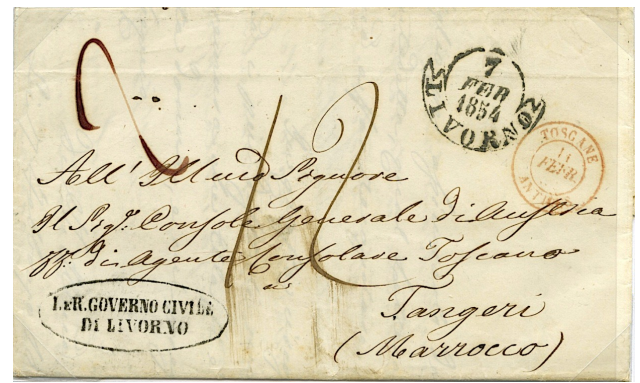 7
FEB
1854
LIVORNO
TOSCANE
11
FEVR
ANTIBES
12
All' Illmo Signore
Il Sigr. Console Generale di Austria
ff. di Agente Consolare Toscano
in
Tangeri
(Marrocco)
I. E R. GOVERNO CIVILE
DI LIVORNO